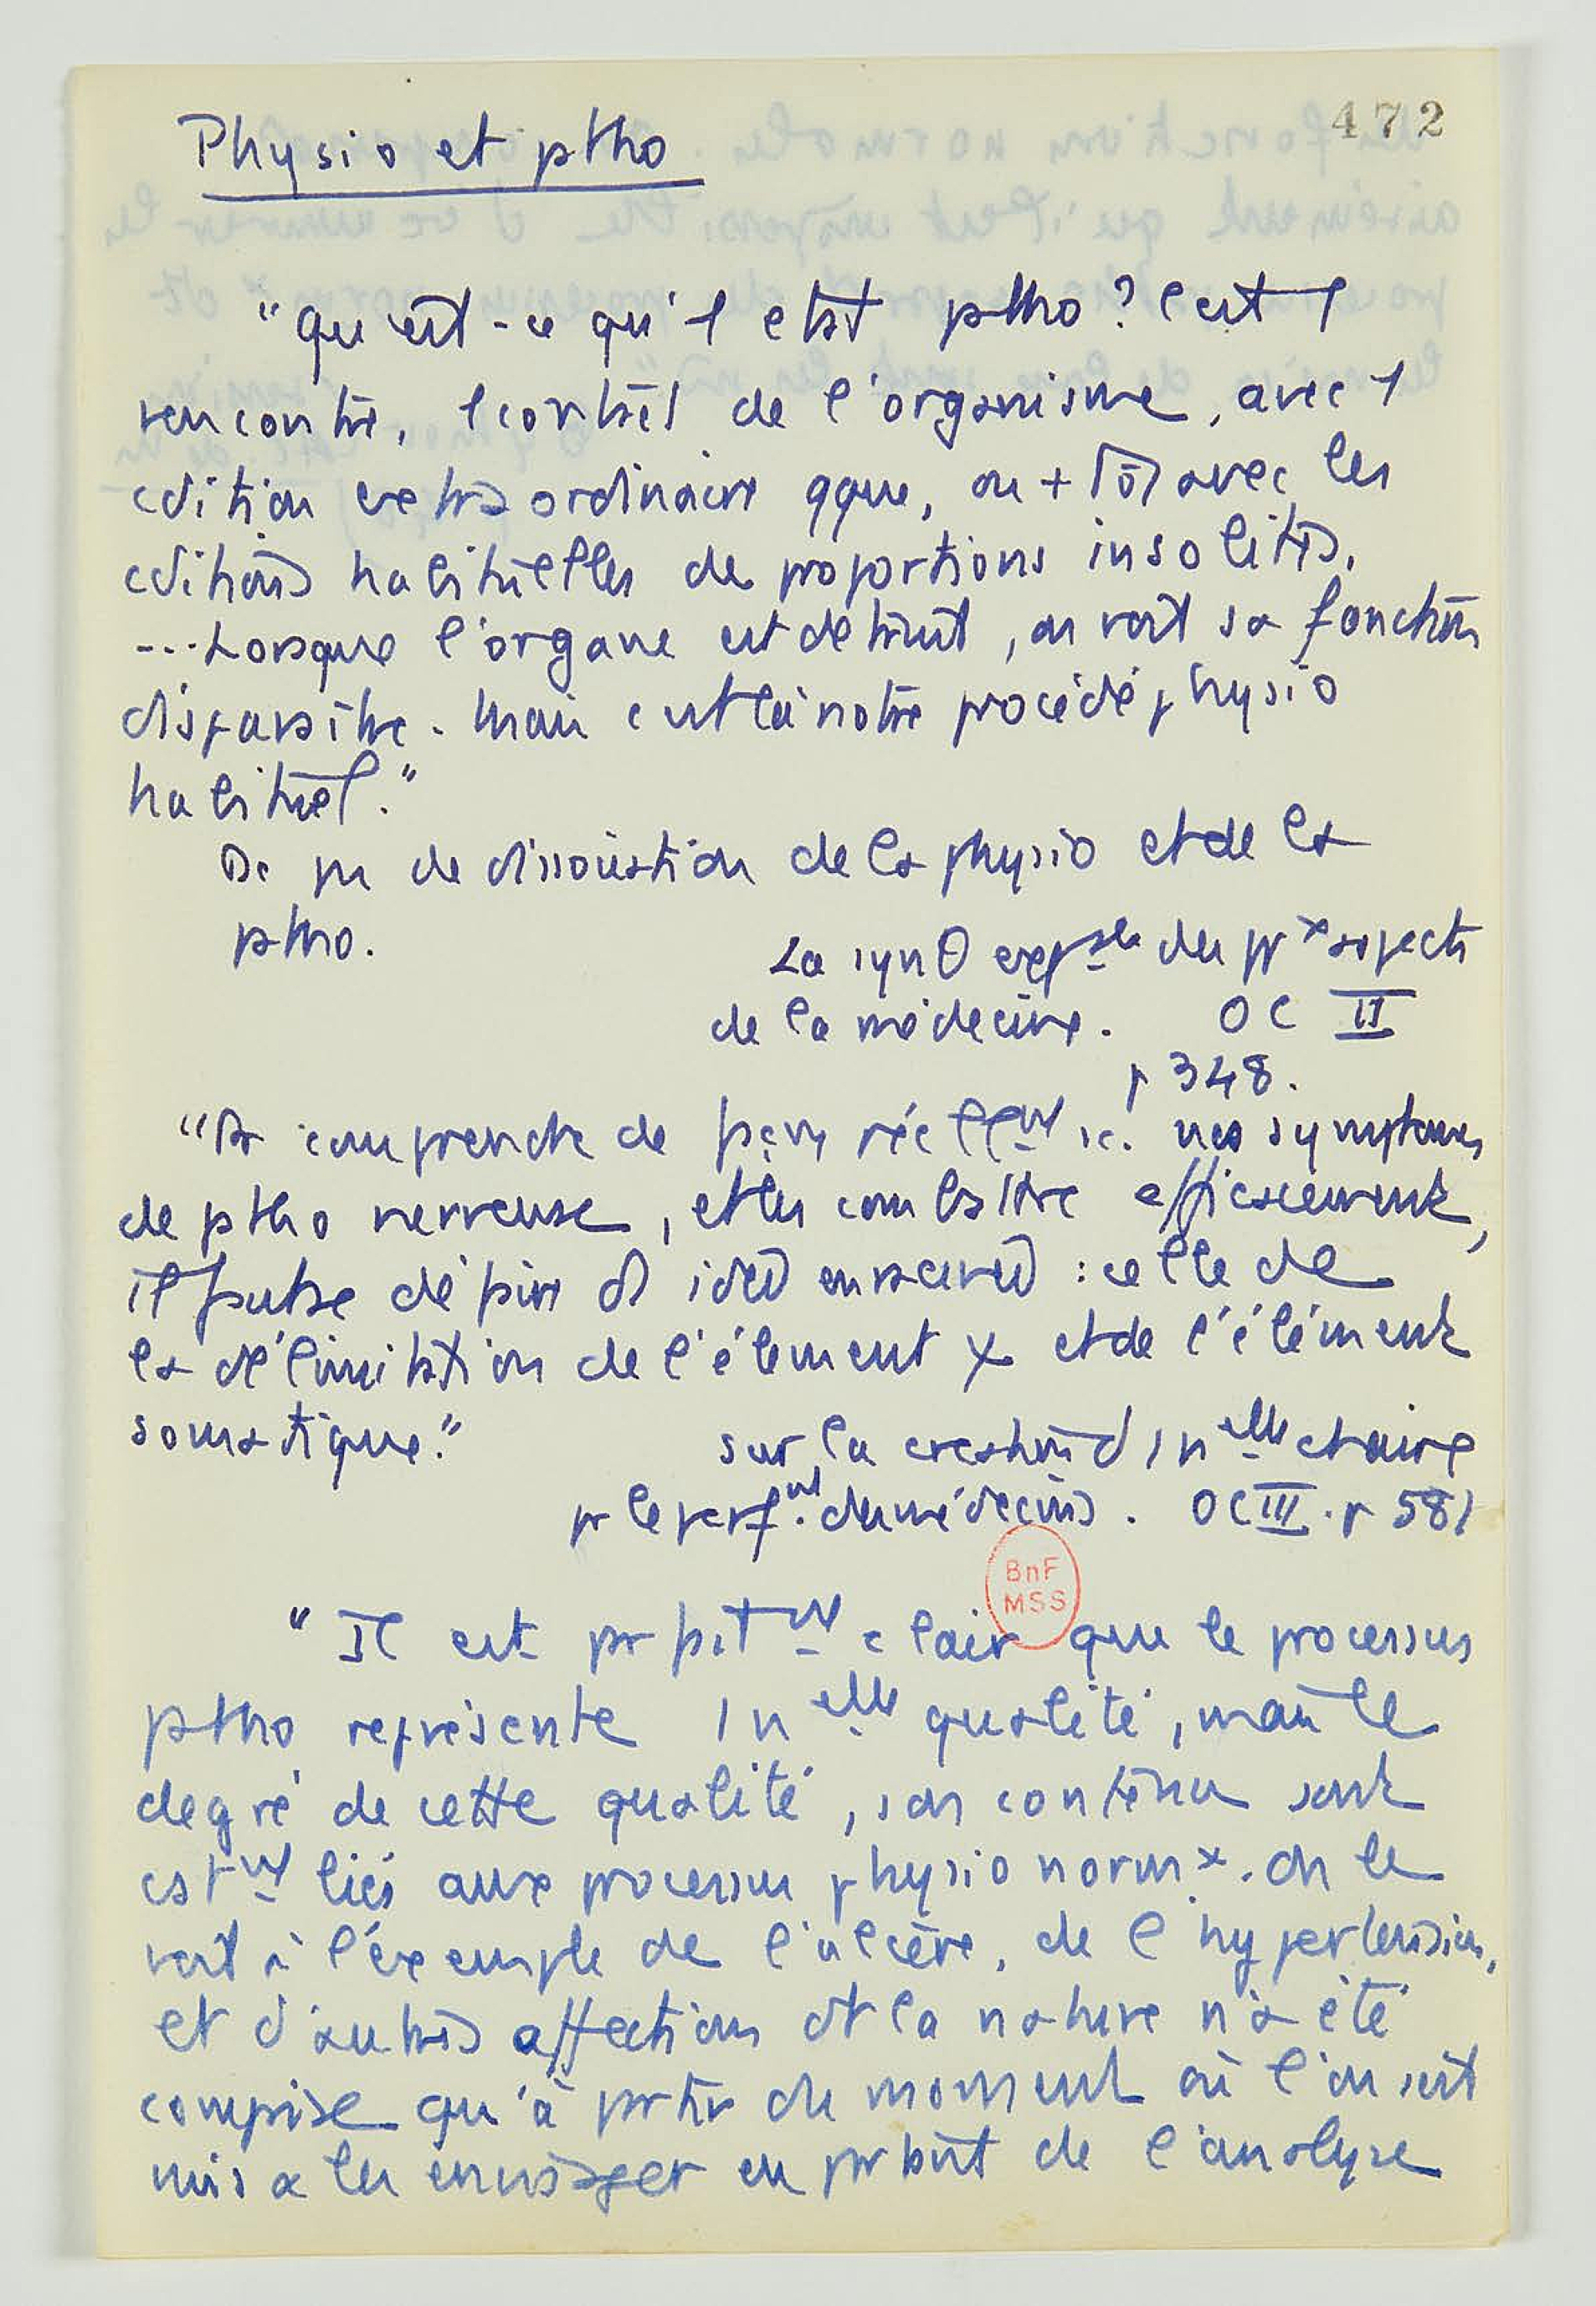 472
Physio et ptho
"Qu'est-ce qu'1 etat ptho? C'est 1
rencontre, 1 contact de l'organisme, avec 1
cdition extraordinaire qque, ou + avec les
cditions habituelles de proportions insolites.
...Lorsque l'organe est detruit, on voit sa fonction
disparaître. Mais c'est là notre procédé physio
habituel."
de dissociation de la physio et de la
ptho.
La synθ des aspects
de la médecine. OC II
p 348.
comprendre de façon réellmt sc. nos symptomes
de ptho nerveuse, et les combattre efficacement,
il faudra définir idées : celle de
la délimitation de l'élément et de l'élément
somatique."
sur la creation d'1 nelle chaire
pr le perfmt des médecins. OC III. p 581
BnF
MSS
"Il est clair que le processus
ptho représente 1 nelle qualité, mais le
degré de cette qualité, son contenu sont
liés aux processus physio normx. On le
voit à l'exemple de l'ulcère, de l'hypertension,
et d'autres affections dt la nature n'a été
comprise qu'à partir du moment où l'on s'est
mis à les envisager en partant de l'analyse